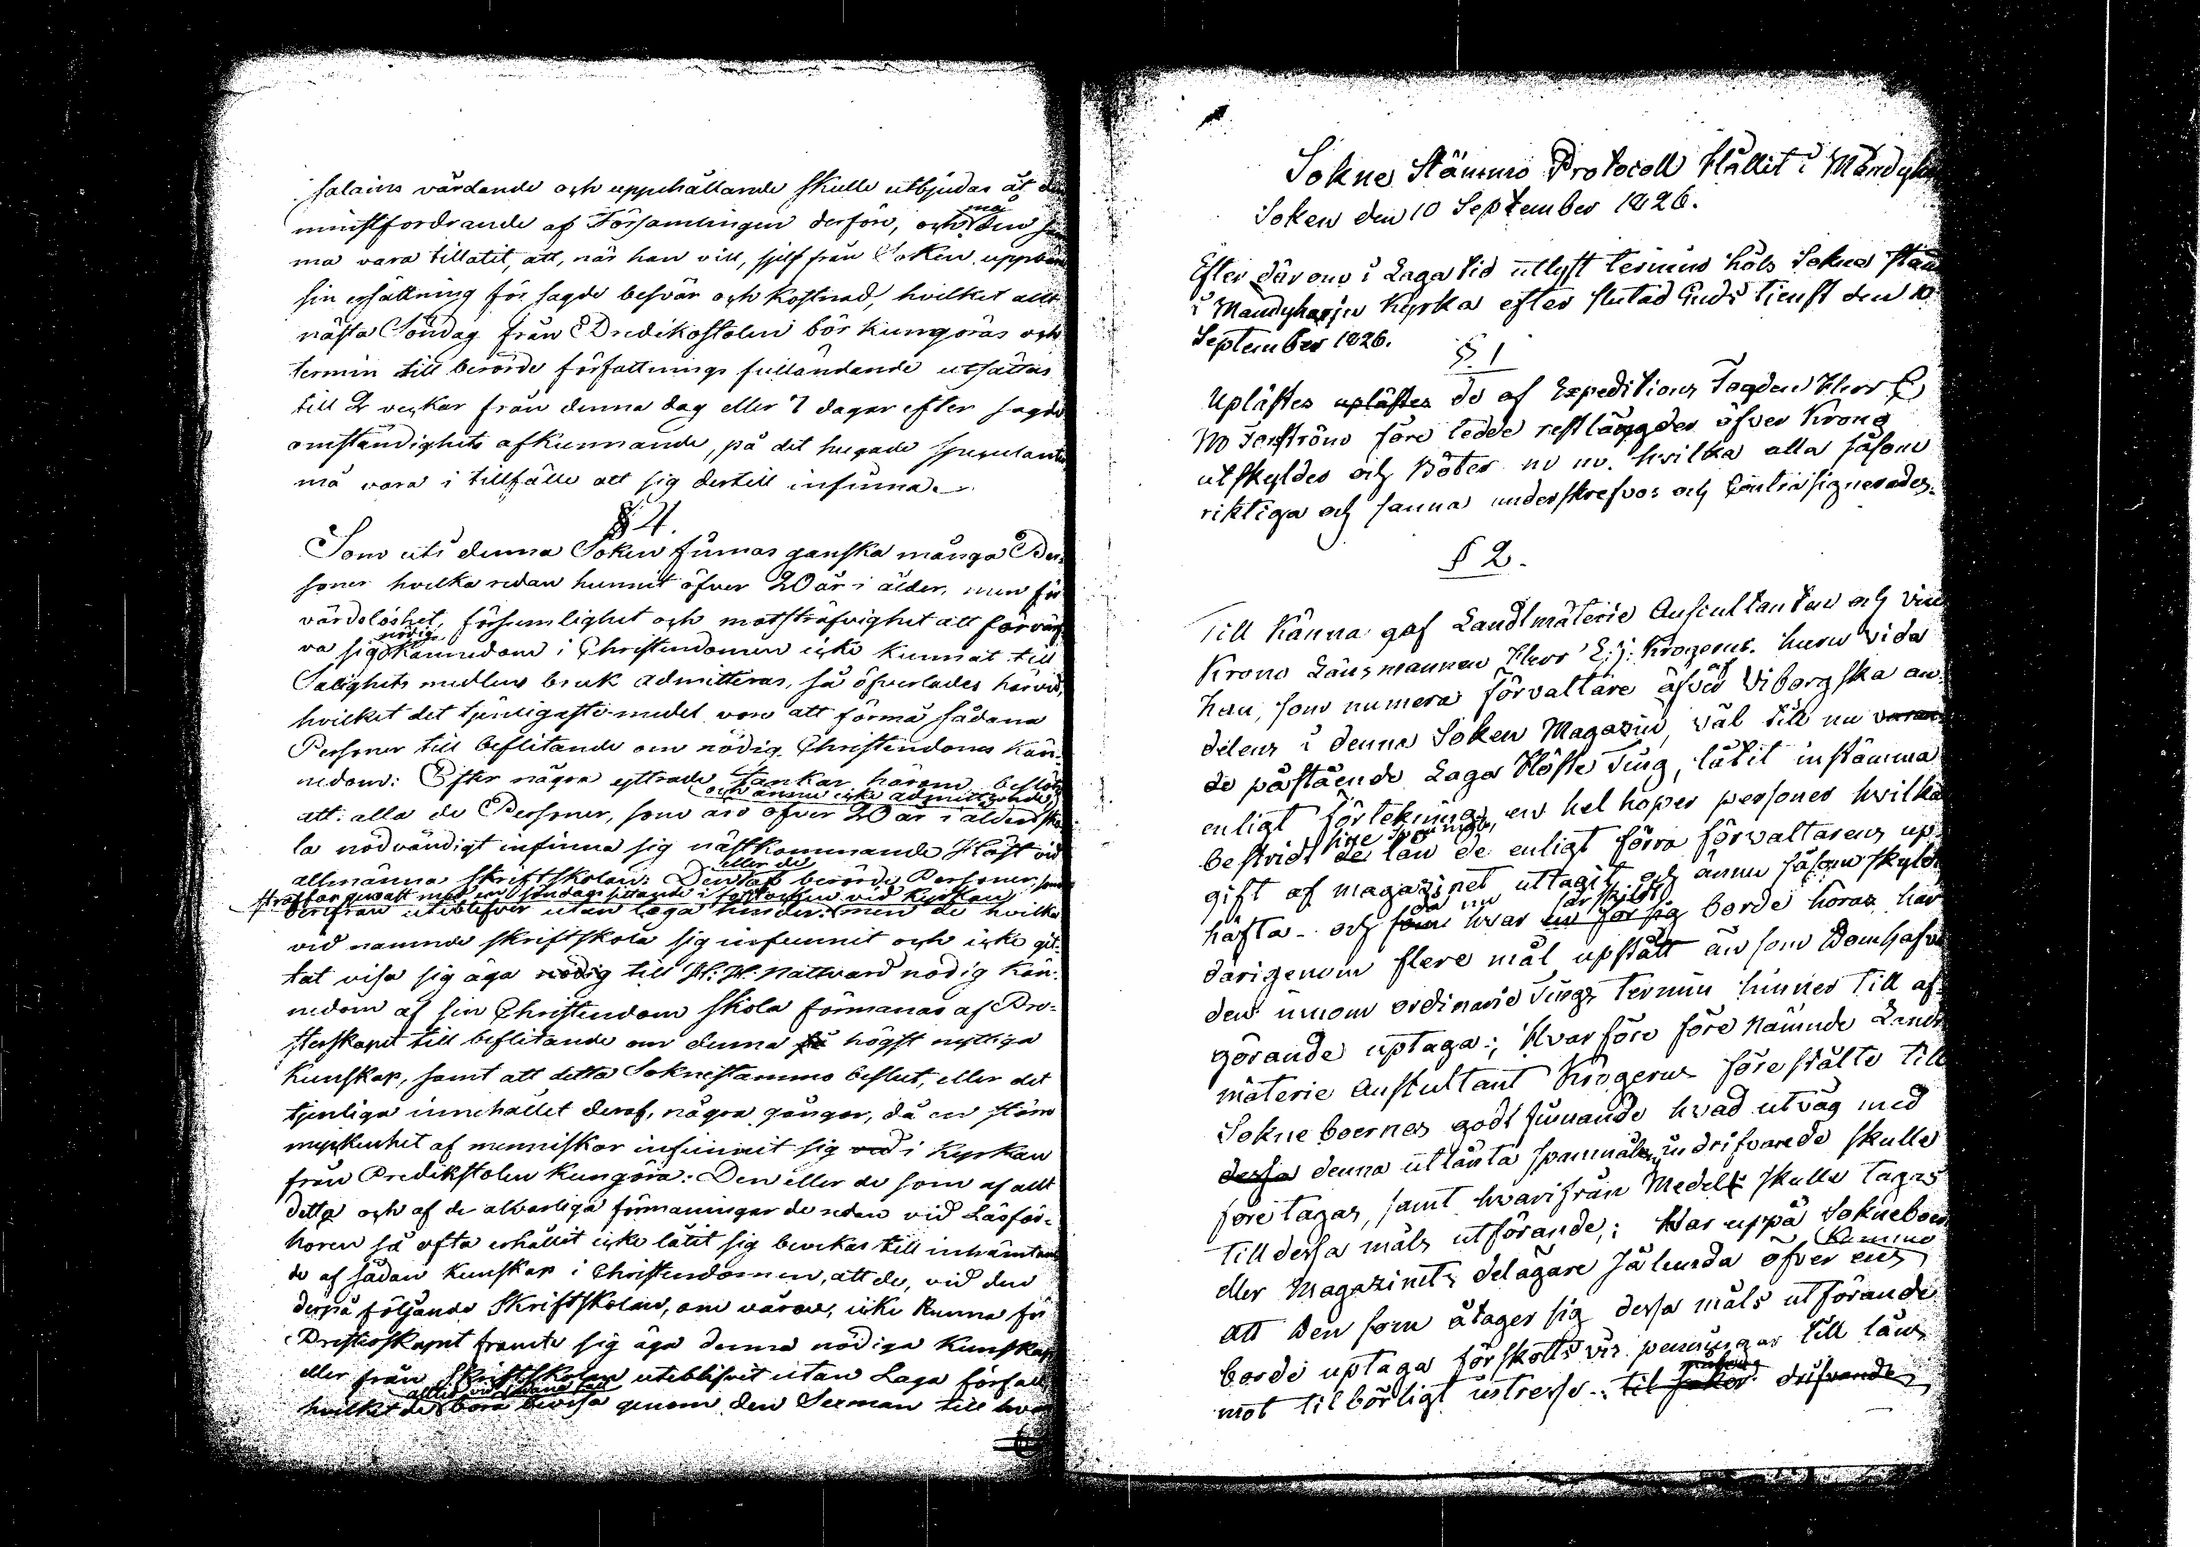 salains vårdande och uppehållande skulle utbjudas åt den
minstfordrande af Församlingen derför, och må den sam
ma vara tillatit, att, när han vill, sjelf från Soken uppbära
sin ersättning för sagde besvär och kostnad, hvilket allt
nästa Söndag från Predikostolen bör kungöras och
termin till berörde författnings fulländande utsättas
till 2 veckor från denna dag eller 7 dagar efter sagde
omständighets afkunnande, på det hugade speculanter
må vara i tillfälle att sig dertill infinna.
§ 4.
Som uti denna Soken finnas ganska många Per-
soner hvilka redan hunnit öfver 20 år i ålder, men för
vårdslöshet, försumlighet och motsträfvighet att förvärf-
va sig nödig kännedom i Christendomen icke kunnat till
Salighets medlens bruk admitteras, så öfverlades härvid,
hvilket det tjenligaste medel vore att förmå sådana
Personer till beflitande om nödig Christendoms kän-
nedom: Efter några yttrade tankar härom beslöts
och ännu icke admitterade
att alla de Personer, som äro öfver 20 år i ålder ska
la nödvändigt infinna sig nästkommande Höst vid
allmänna Skriftskolan: Den eller de berörde Personer, som
straffas med en söndags sittande i fotstocken vid kyrkan
derifrån uteblifver utan laga hinder: men de hvilka
vid namnde skriftskola sig infunnit och icke git-
tat visa sig äga nödig till H. H. Nattvard nödig kän-
nedom af sin Christendom skola förmanas af Pre-
sterskapet till beflitande om denna så högst nyttiga
Kunskap, samt att detta Soknestämmo beslut, eller det
tjenliga innehållet deraf, några gånger, då en större
myckenhet af menniskor infunnit sig vid i Kyrkan
från Predikstolen kungöra: Den eller de som af allt
detta och af de alvarliga förmaningar de redan vid Läsför-
hören så ofta erhållit icke låtit sig bevekas till inhämtan
de af sådan Kunskap i Christendomen, att de, vid den
derpå följande Skriftskolan, om våren, icke kunna för
Presterskapet framte sig äga denna nödiga Kunskap
eller från Skriftskolan uteblifvit utan Laga förfall
alltid vid sådana fall
hvilket de böra bevisa genom den Sexman till hvar
Sokne Stämmo Protocoll Hållit i Mändyha
Soken den 10 September 1826.
Efter där om i Laga tid utlyst termin höls Sokne stäm
i Mändyharju Kyrka efter slutad Guds tienst den 10
September 1826.
§. 1
Uplästes uplästes de af Expeditions Fogden Herr C
W Forström före tedde restlängder öfver Krono
utskylder och Böter m m. hvilka alla såsom
riktiga och sanna underskrefvos och Contrasignerades.
§ 2.
Till Känna gaf Landtmäterie Auscultanten och vice
Krono Länsmannen Herr E: J: Krogerus. huru vida
han, som numera förvaltare äfver af Viborgska an
delens i denna Soken Magazin, väl till nu varan
de påstående Laga Höste Ting, låtit instämma
enligt förtekning, en hel hoper personer hvilka
bestridt de lån de enligt förra förvaltarens up-
gift af magazinet uttagit och ännu såsom skyldi
häfta. och som då nu hvar en för sig särskildt borde höras har
därigenom flere mål upstått än som Domhafvan
den innom ordinarie Tings termin hinner till af-
görande uptaga; Hvarföre före nämnde Landt
mäterie Auscultant Krogerus förestälte till
Sokneboernes godt finnande hvad utväg med
dessa denna utlånta spannmåls indrifvande skulle
företagas, samt hvarifrån Medel skulle tagas
till dessa måls utförande; Hvar uppå Sokneboer
eller Magazinets delägare sålunda öfver ens Kommo
att Den som åtager sig dessa måls utförande
borde uptaga förskotts vis penningar till låns
mot tilbörligt interesse. til saker drifvande